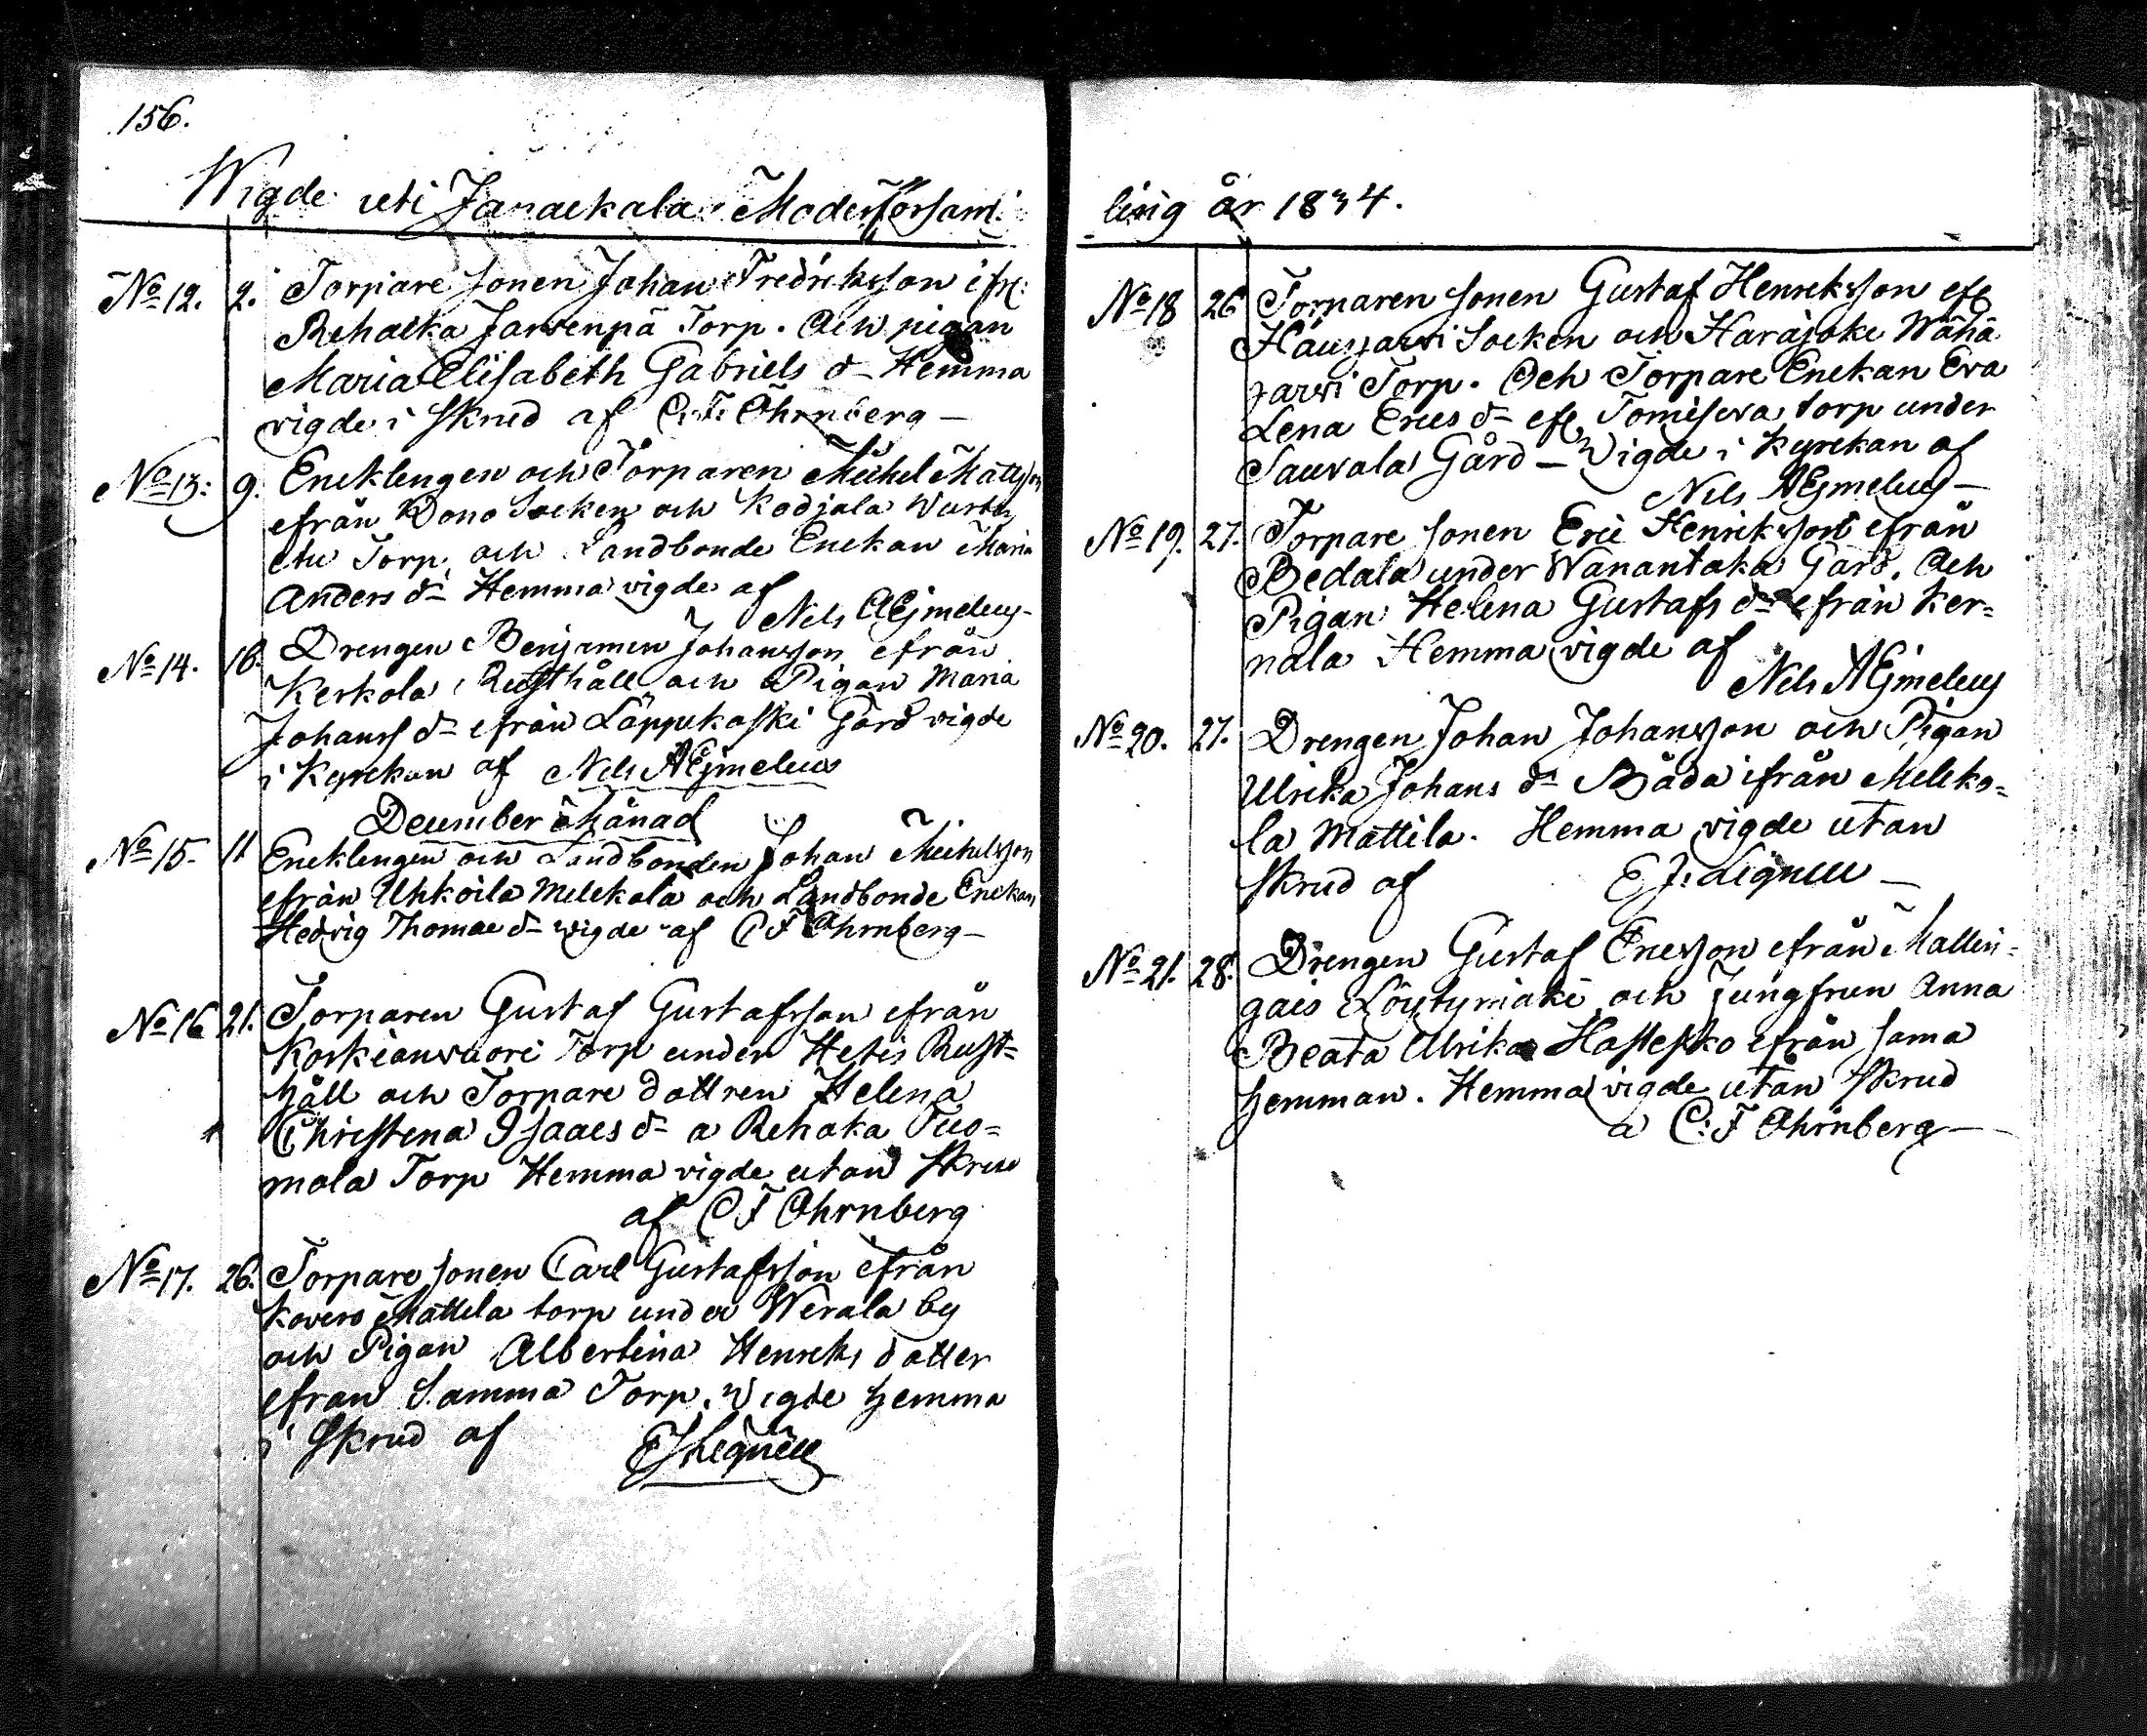 156.
Wigde uti Janackala Moderförsam:
No 12. 2. Torpare sonen Johan Fredriksson ifr:
Rehacka Jarvenpä Torp. Och pigan
Maria Elisabeth Gabriels d:r Hemma
vigde i skrud af C. F. Öhrnberg —
No 13: 9. Encklingen och Torparen Michel Mattsson
ifrån Dono Socken och Kodjala
Torp, och Landbonde Enckan Maria
Anders d:r Hemma vigde af
Nils AEjmelius
No 14. 16. Drengen Benjamin Johansson ifrån
Kerkola Rusthåll och Pigan Maria
Johans d:r ifrån Löppukoski Gård vigde
i Kyrckan af Nils AEjmelius
December Månad
No 15. 11 Encklingen och Landbonden Johan Michelsson
ifrån Uhkoila Melckola och Landbonde Enckan
Hedvig Thomae d:r vigde af C F Öhrnberg —
No 16 21. Torparen Gustaf Gustafsson ifrån
Koskianvuori Torp under Hetis Rust=
håll och Torpare dottren Helena
Christina Isaacs d:r a Rehaka Tuo=
mola Torp Hemma vigde utan skrud
af C F Öhrnberg
No 17. 26. Torpare sonen Carl Gustafsson ifrån
Kovero Mattila torp under Wirala by
och Pigan Albertina Henriks dotter
ifran Samma Torp. Wigde hemma
i Skrud af E J Lignell
ling år 1834.
No 18 26 Torparen sonen Gustaf Henriksson ifr
Hausjarvi Socken och Harajoki Wähä
jarvi Torp. Och Torpare Enckan Eva
Lena Erics d:r ifr Tomiseva torp under
Sauvala Gård — Wigde i Kyrckan af
Nils AEjmelius —
No 19. 27. Torpare sonen Eric Henriksson ifrån
Bedala under Wanantaka Gård. Och
Pigan Helena Gustafs d:r ifrån Ker=
nala Hemma vigde af
Nils AEjmelius
No 20. 27. Drengen Johan Johansson och Pigan
Ulrika Johans d:r Båda ifrån Melko=
la Mattila. Hemma vigde utan
skrud af E J: Lignell —
No 21. 28. Drengen Gustaf Ericsson ifrån Mallin=
gais Löytymäki och Jungfrun Anna
Beata Ulrika Hastesko ifrån sama
hemman. Hemma vigde utan skrud
a C: F Öhrnberg —